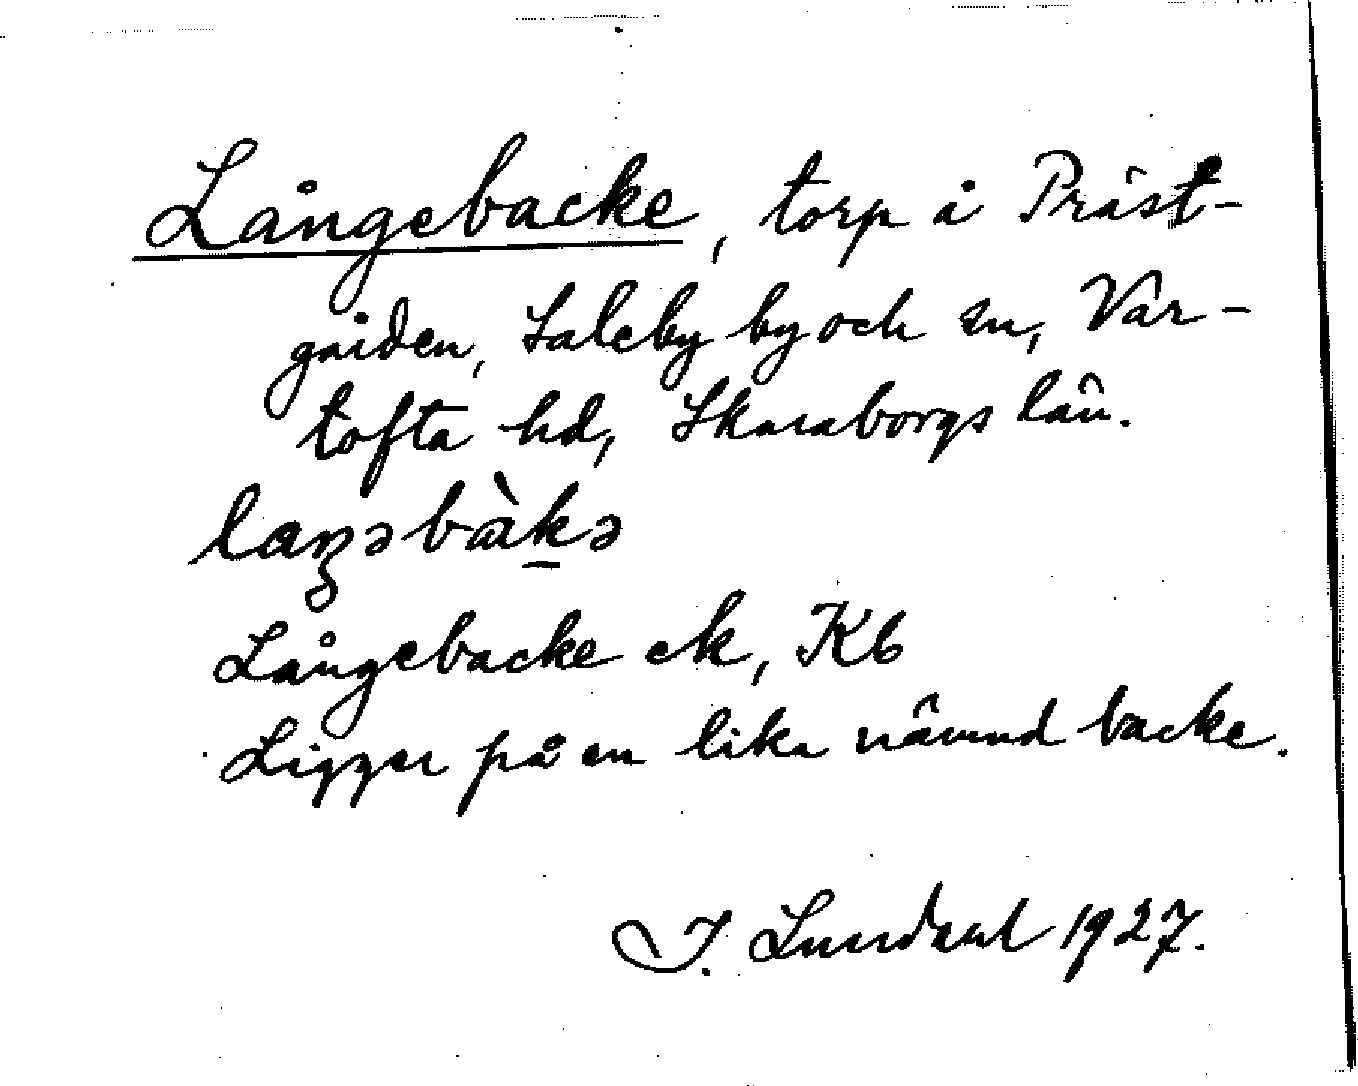 Långebacke, torp å Präst-
gården, Saleby by och sn, Var-
tofta hd, Skaraborgs län.
laŋəbàkə
Långebacke ek, Kb
Ligger på en lika nämnd backe.
I. Lundahl 1927.